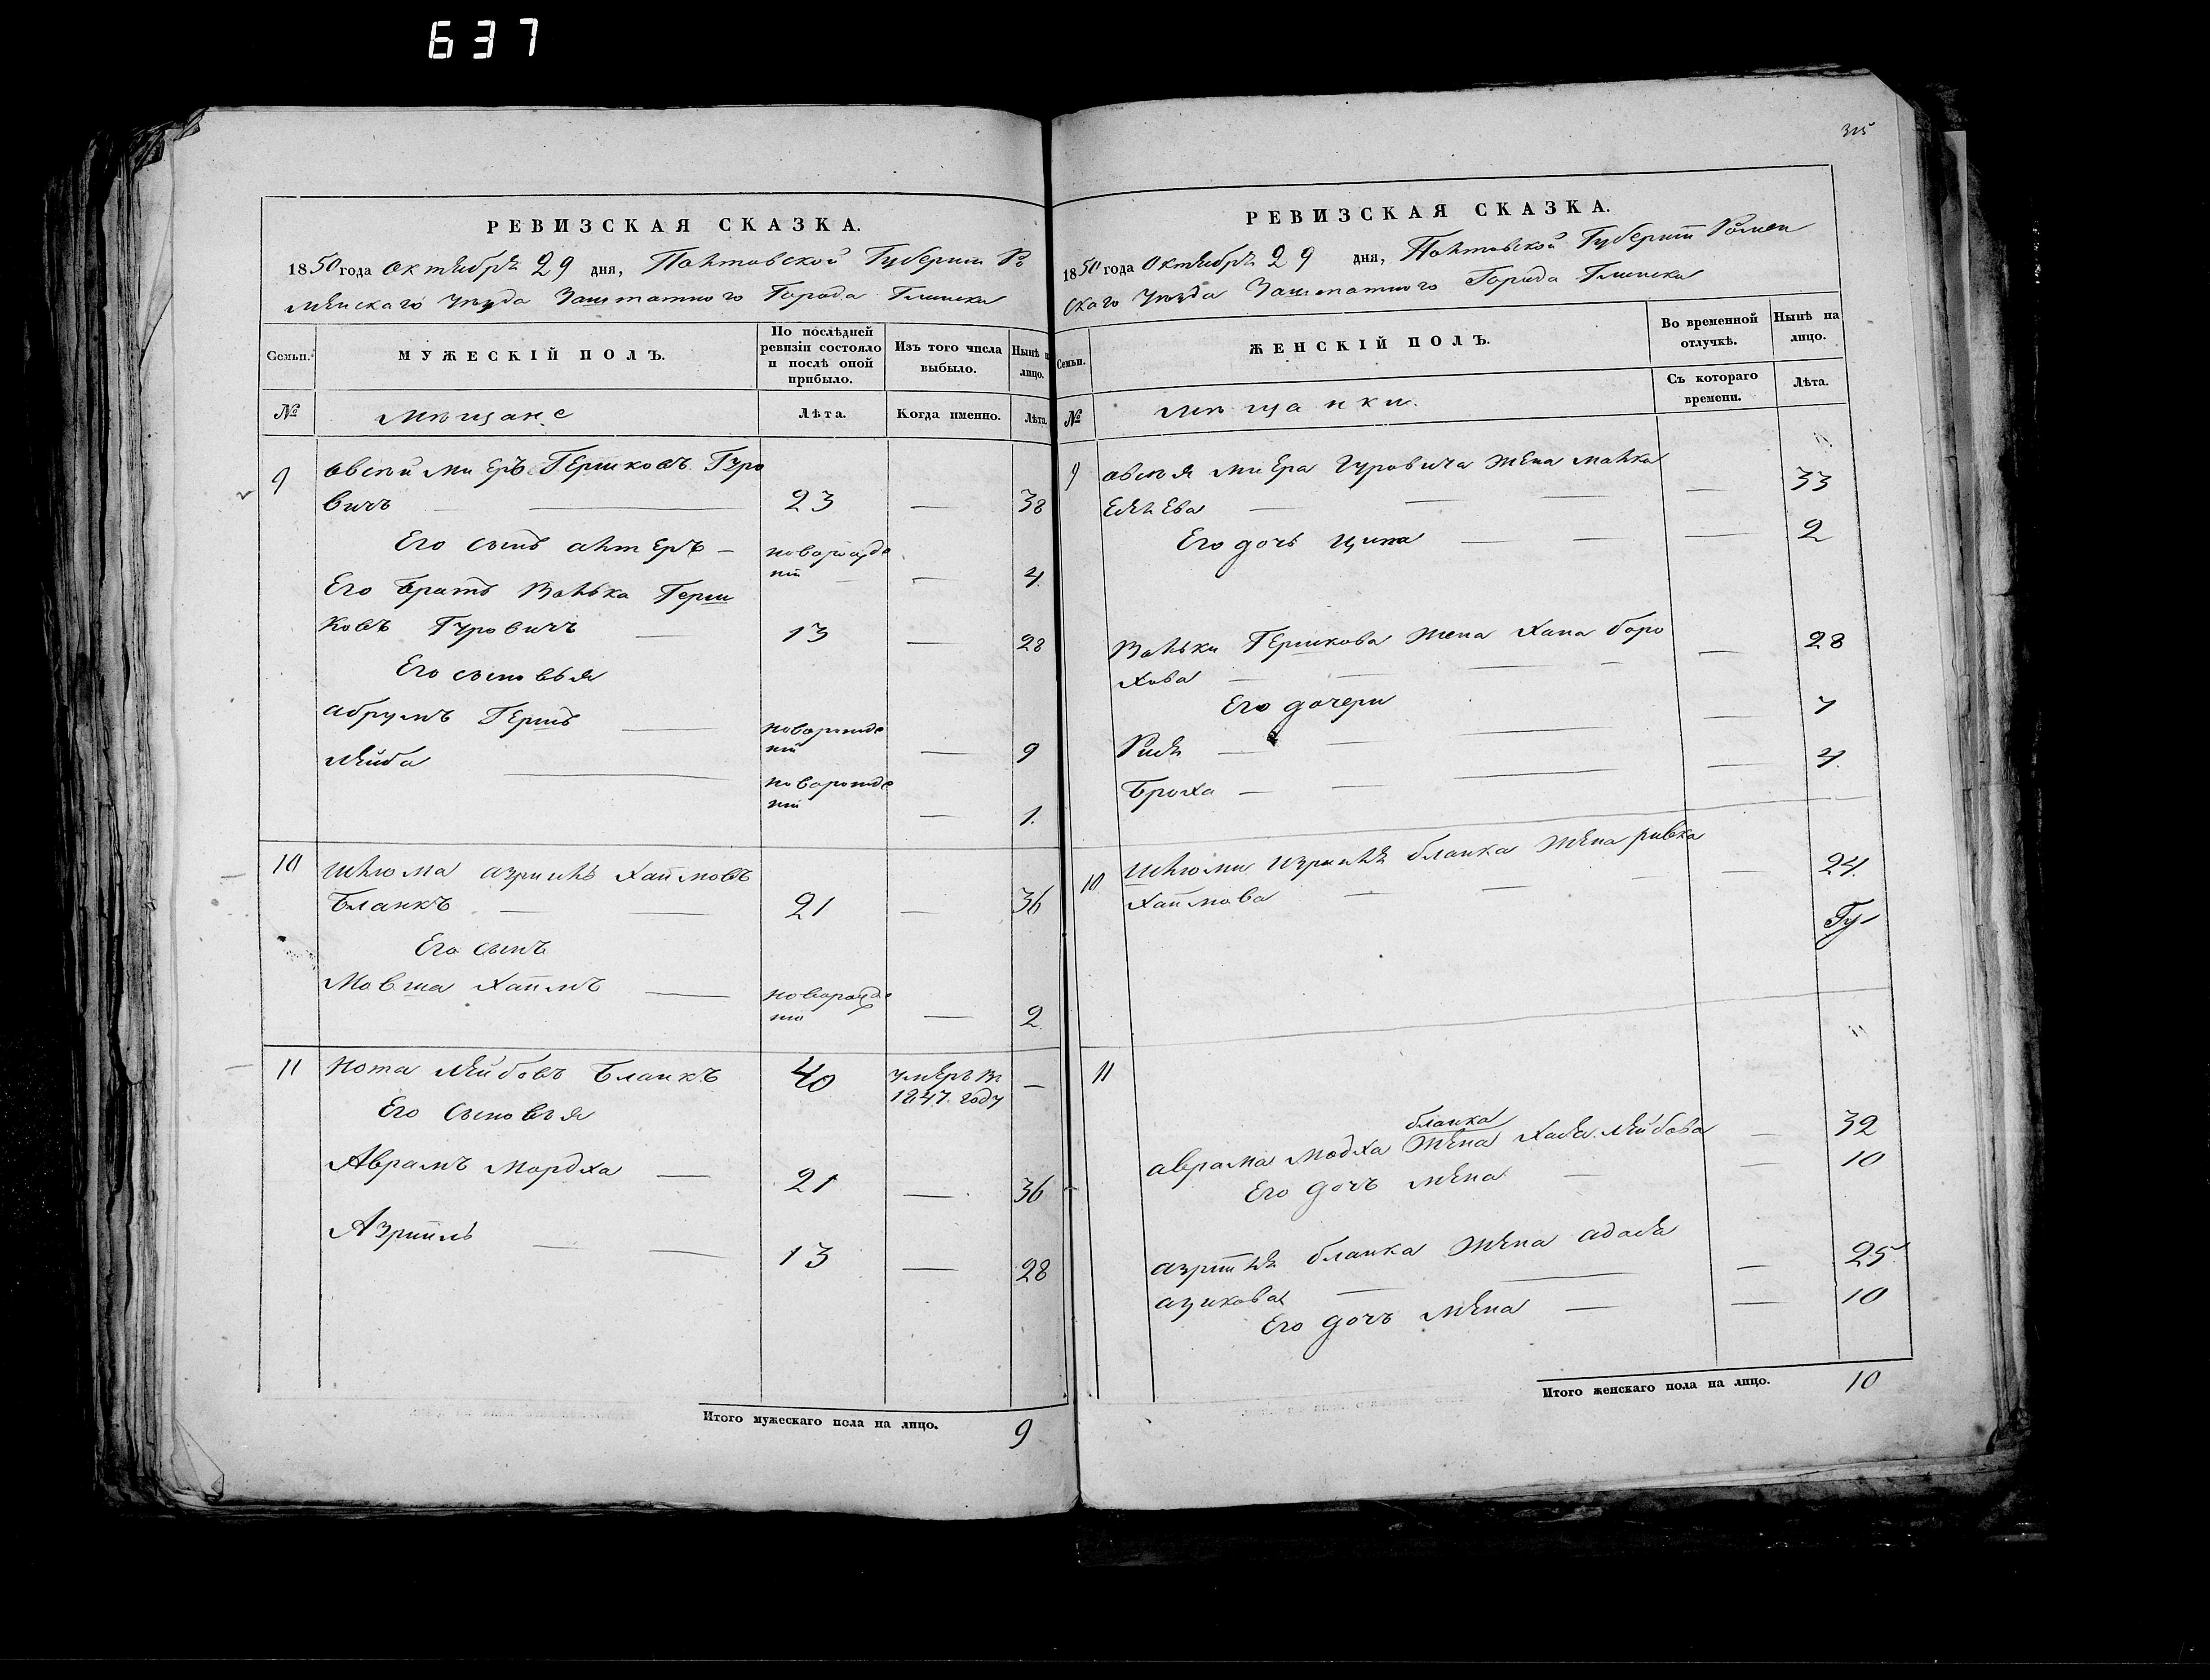 637
РЕВИЗСКАЯ СКАЗКА.
1850 года октября 29 дня, Полтовской Губернии Ро
менскаго уезда Заштатного Города Глинска
Семьи.
МУЖЕСКІЙ ПОЛЪ.
По послѣдней ревизіи состояло и послѣ оной прибыло.
Изъ того числа выбыло.
Нынѣ н лицо.
№
мещане
Лѣта.
Когда именно.
Лѣта.
9
овсей миеръ Гершковъ Гуро
вичъ — 23 — 38
Его сынъ алтеръ — новорожде
ній — 4
Его Братъ Волька Герш
ковъ Гуровичъ — 13 — 28
Его сыновья
абрумъ Гершъ — новорожде
ній — 9
лейба — новорожде
ній — 1.
10 Шлюома азриилъ Хаимовъ
Бланкъ — 21 — 36
Его сынъ
Мовша Хаимъ — новорожде
ній — 2
11 Нота Лейбовъ Бланкъ 40 умеръ въ 1847 году —
Его сыновья
Аврамъ Мордха — 21 — 36
Азриилъ — 13 — 28
Итого мужескаго пола на лицо. 9
315
РЕВИЗСКАЯ СКАЗКА.
1850 года октября 29 дня, Полтовской Губерніи Ромен
скаго уезда Заштатного Города Глинска
Семьи.
ЖЕНСКІЙ ПОЛЪ.
Во временной отлучкѣ.
Нынѣ на лицо.
№
мещанки.
Съ котораго времени.
Лѣта.
9 овсея миера Гуровича жена малка
— — 33
Его дочь ципа — — 2
Вольки Гершкова жена Хана боро
хова — — 28
Его дочери — 7
Рися —
Броха — — 4
10 Шлюоми Изриеля бланка жена ривка
Хаимова — — 24
11
бланка
аврама модха жена Хася Лейбова — 32
Его дочь мена — — 10
азриеля бланка жена адася
ицикова — — 25
Его дочъ мена — — 10
Итого женскаго пола на лицо. 10